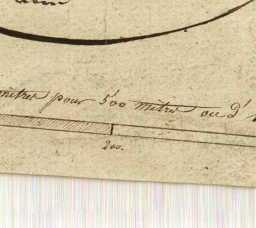 mètres pour 500 mètres ou d'
200.